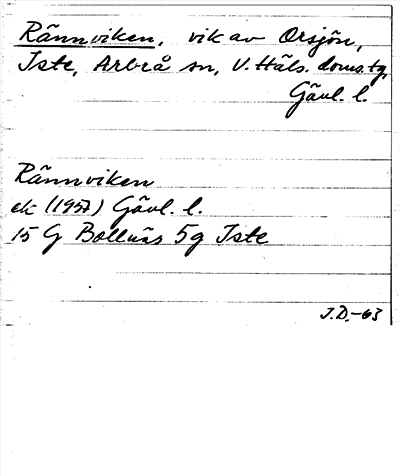 Rännviken, vik av Orsjön,
Iste, Arbrå sn, V. Häls. doms.tg,
Gävl. l.
Rännviken
ek (1957) Gävl. l.
15 G Bollnäs 5g Iste
J.D.-63